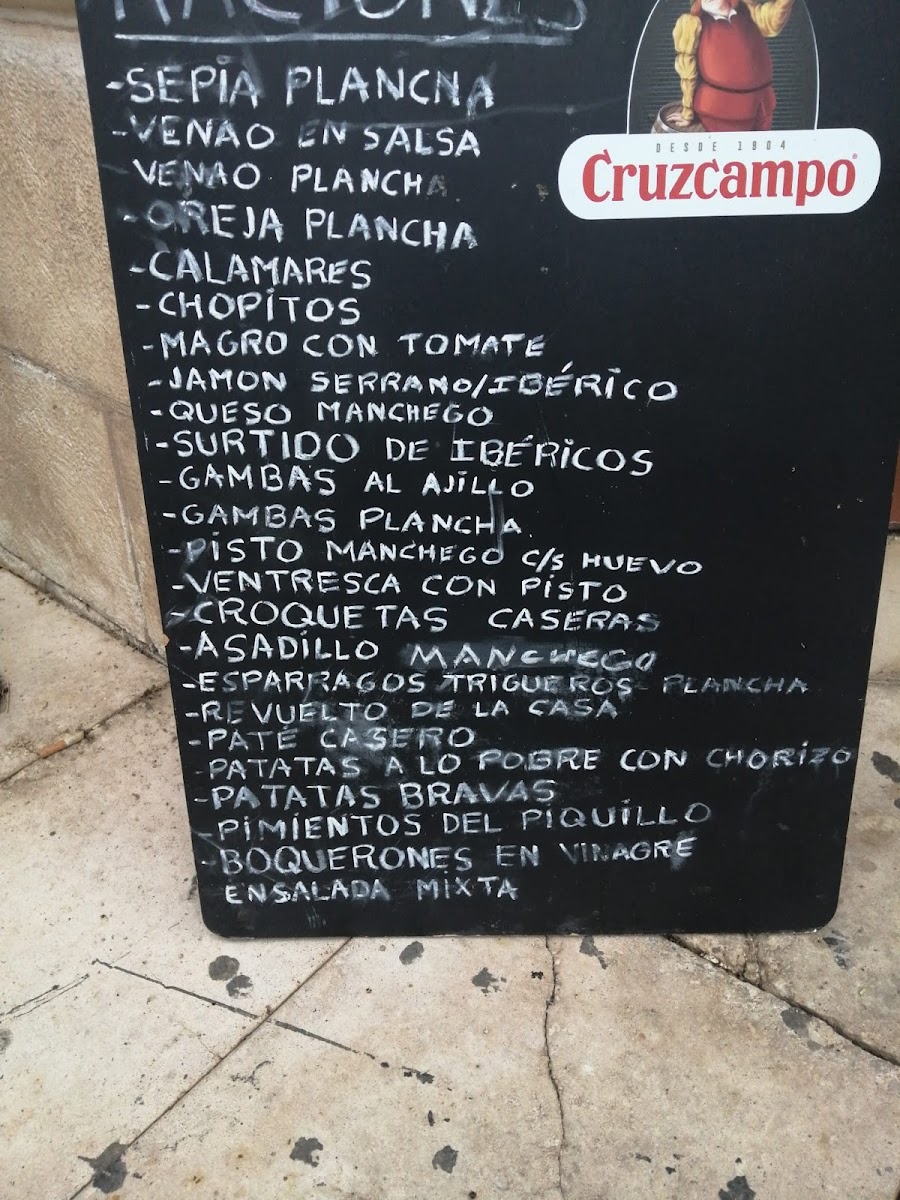 RACIONES
-SEPIA PLANCHA
-VENAO EN SALSA
VENAO PLANCHA
-OREJA PLANCHA
-CALAMARES
-CHOPITOS
-MAGRO CON TOMATE
-JAMON SERRANO/IBÉRICO
-QUESO MANCHEGO
-SURTIDO DE IBÉRICOS
-GAMBAS AL AJILLO
-GAMBAS PLANCHA
-PISTO MANCHEGO C/S HUEVO
-VENTRESCA CON PISTO
-CROQUETAS CASERAS
-ASADILLO MANCHEGO
-ESPARRAGOS TRIGUEROS PLANCHA
-REVUELTO DE LA CASA
-PATÉ CASERO
-PATATAS A LO POBRE CON CHORIZO
-PATATAS BRAVAS
-PIMIENTOS DEL PIQUILLO
-BOQUERONES EN VINAGRE
ENSALADA MIXTA
DESDE 1904
Cruzcampo